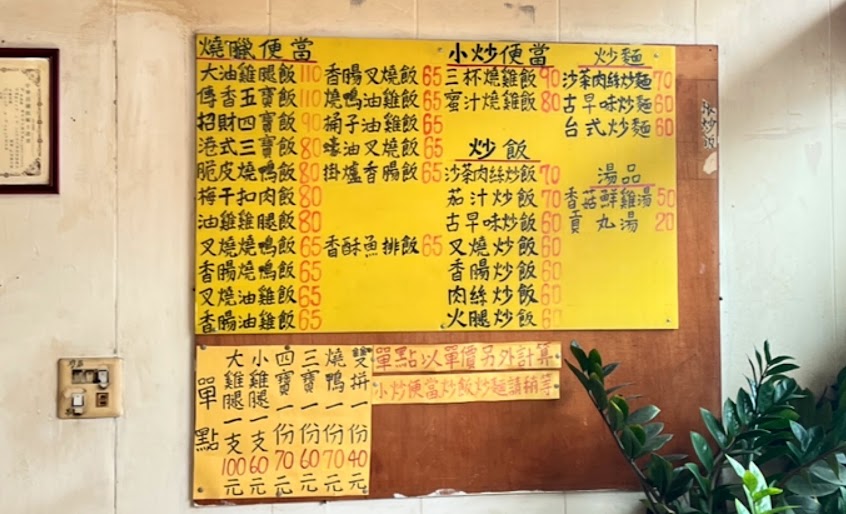 燒臘便當
大油雞腿飯 110
傳香五寶飯 110
招財四寶飯 90
港式三寶飯 80
脆皮燒鴨飯 80
梅干扣肉飯 80
油雞雞腿飯 80
叉燒燒鴨飯 65
香腸燒鴨飯 65
叉燒油雞飯 65
香腸油雞飯 65
香腸叉燒飯 65
燒鴨油雞飯 65
桶子油雞飯 65
蠔油叉燒飯 65
掛爐香腸飯 65
香酥魚排飯 65
小炒便當
三杯燒雞飯 90
蜜汁燒雞飯 80
炒飯
沙茶肉絲炒飯 70
茄汁炒飯 70
古早味炒飯 60
叉燒炒飯 60
香腸炒飯 60
肉絲炒飯 60
火腿炒飯 60
炒麵
沙茶肉絲炒麵 70
古早味炒麵 60
台式炒麵 60
湯品
香菇鮮雞湯 50
貢丸湯 20
單點
大雞腿一支 100元
小雞腿一支 60元
四寶一份 70元
三寶一份 60元
燒鴨一份 70元
雙拼一份 40元
單點以單價另外計算
小炒便當炒飯炒麵請稍等